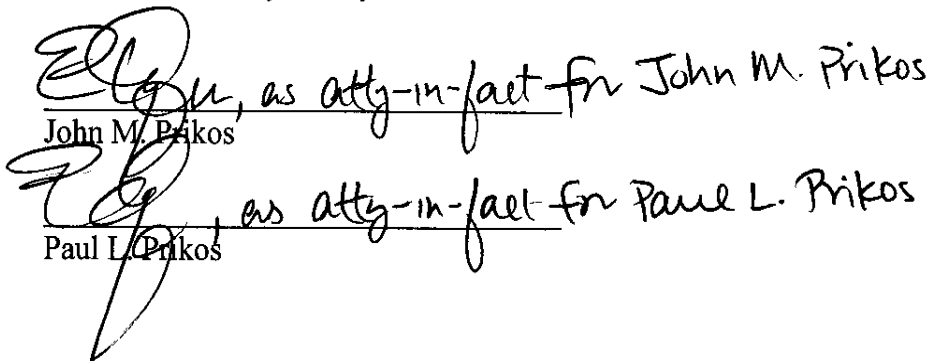 , as atty-in-fact for John M. Prikos
John M. Prikos
, as atty-in-fact for Paul L. Prikos
Paul L. Prikos